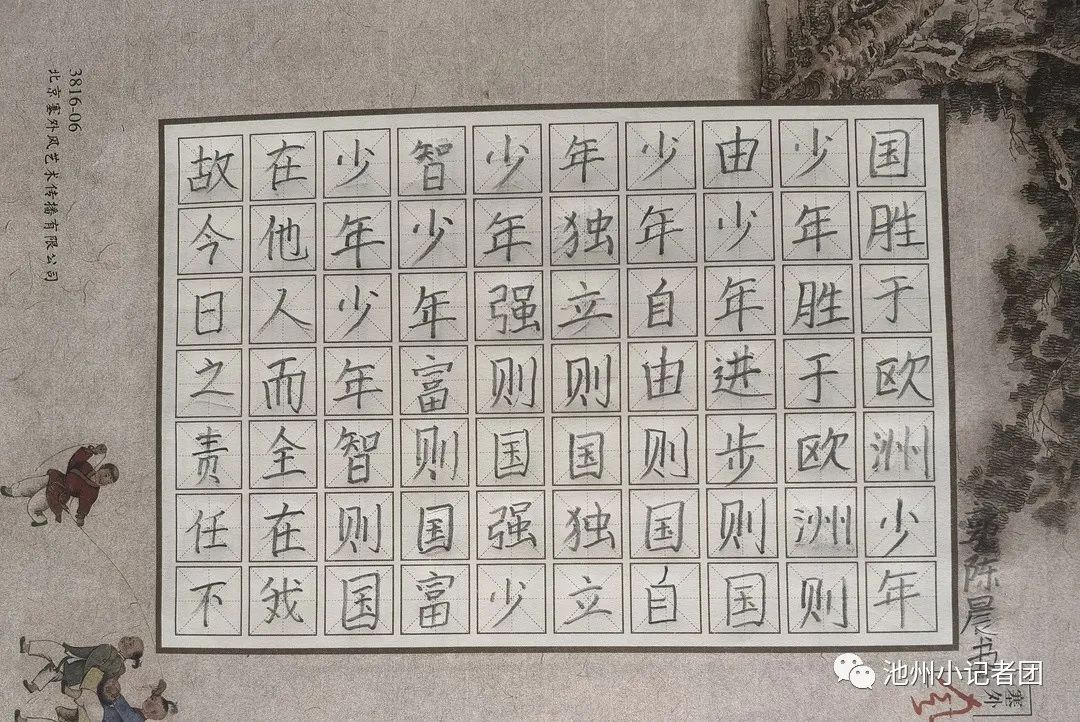 3816-06
北京塞外风艺术传播有限公司
故今日之责任不
在他人而全在我
少年少年智则国
智少年富则国富
少年强则国强少
年独立则国独立
少年自由则国自
由少年进步则国
少年胜于欧洲则
国胜于欧洲少年
陈晨书
塞外
池州小记者团